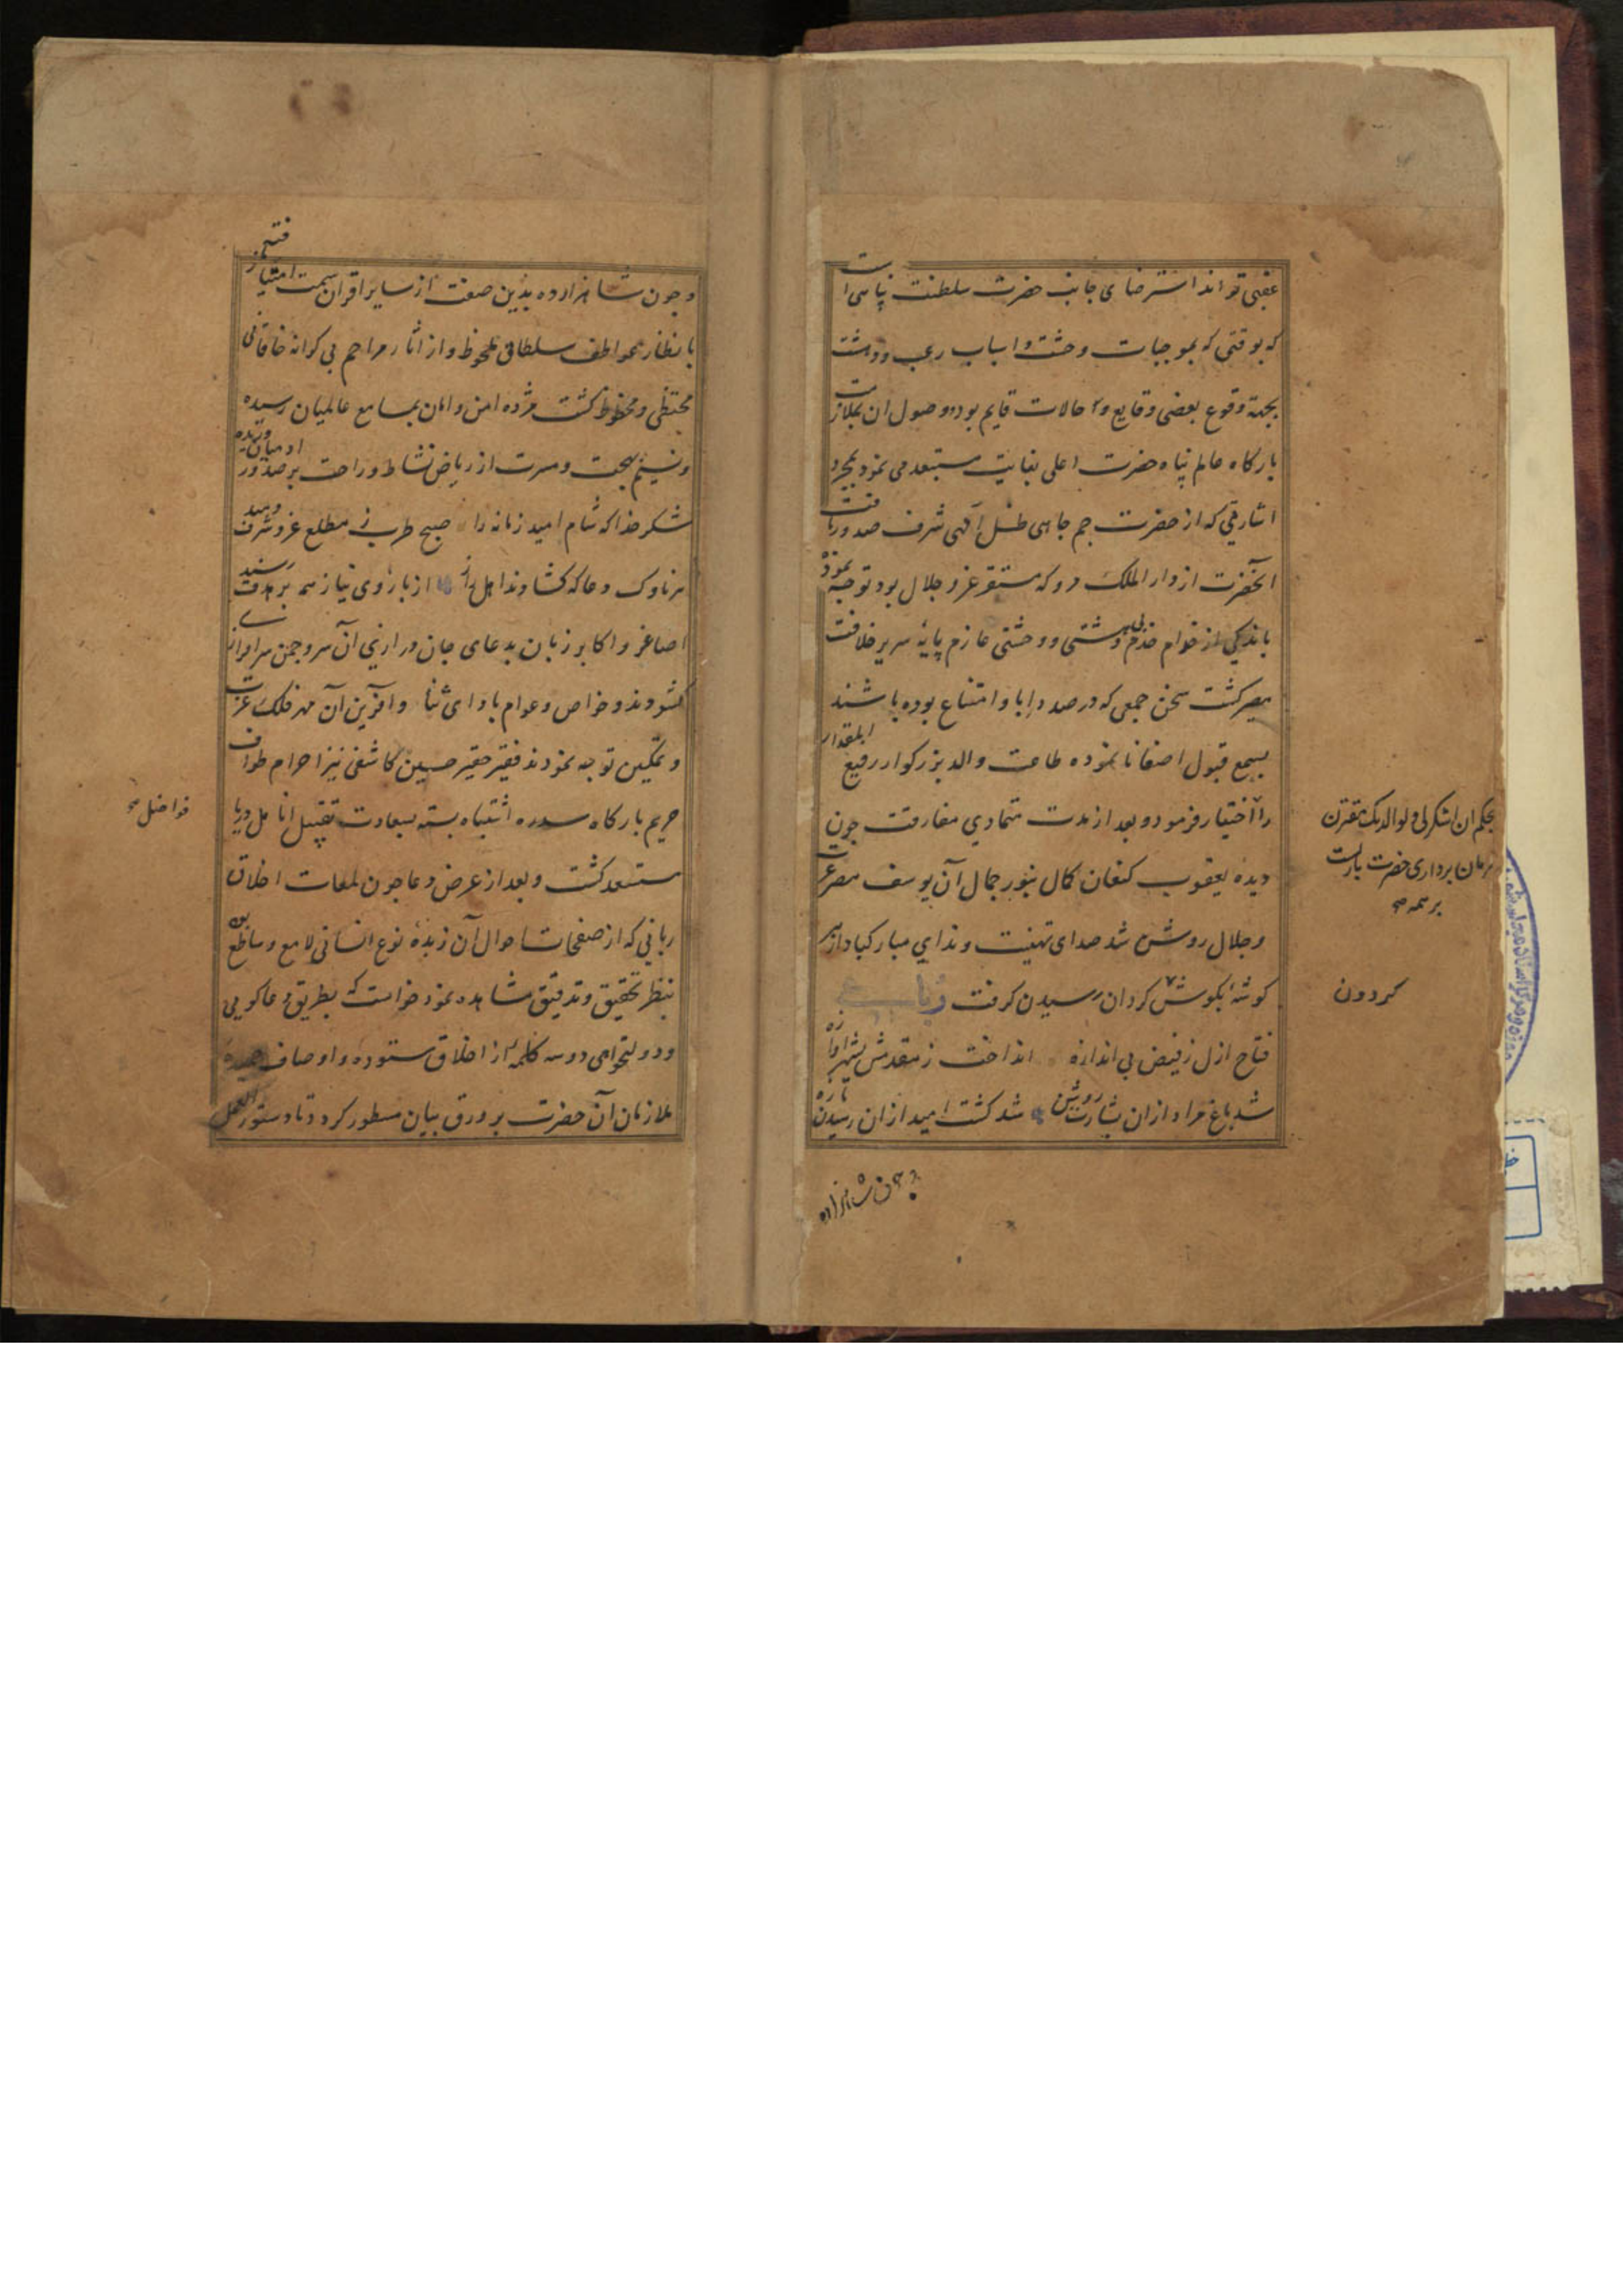 عقبی تواند استرضای جانب حضرت سلطنت پناهی است
که بوقتی که بموجبات وحشت و اسباب رعب و دهشت
بجهة وقوع بعضی وقایع و حالات قایم بود و وصول ان بملازمت
بارکاه عالم پناه حضرت اعلی بغایت مستبعد می نمود بمجرد
اشارتی که از حضرت جم جاهی ظل آلهی شرف صدور یافت
آنحضرت از دار الملک مرو که مستقر عز و جلال بود توجه نموده
باندکی از خدام بی دهشتی و وحشتی عازم پایهٔ سریر خلافت
مصیر کشت سخن جمعی که در صدد اِبا و امتناع بوده باشند
بسمع قبول اصغا نا نموده طاعت والد بزرکوار رفیع المقدار
را اختیار فرمود و بعد از مدت تمادی مفارقت جون
دیده یعقوب کنعان کمال بنور جمال آن یوسف مصر عزت
و جلال روشن شد صدای تهنیت و ندای مبارکباد از هر
کوشهٔ بکوش کردان رسیدن کرفت رباعی
فتاح ازل ز فیض بی اندازه انداخت ز مقدمش بشهر اوازه
شد باغ مراد ازان بشارت روشن شد کشت امید ازان رسیدن تازه
بحکم ان اشکر لی و لوالدیک
فرمان برداری حضرت
بر همه
کردون
جون شاهزاده
و جون شاهزاده بدین صفت از سایر اقران سمت امتیاز یافتند
بانظار عواطف سلطانی ملحوظ و از اثار مراحم بی کرانه خاقانی
محتظی و محظوظ کشت مژده امن و امان بمسامع عالمیان رسیده
و نسیم بهجت و مسرت از ریاض نشاط و راحت بر صدور ادمیان وزیده
شکر خدا که شام امید زمانه را صبح طرب ز مطلع عز و شرف دمید
هر ناوک دعا که کشادند اهل راز از بازوی نیاز همه بر هدف رسید
اصاغر و اکابر زبان بدعای جان درازی آن سرو جمن سرافرازی
کشودند و خواص و عوام بادای ثنا و آفرین آن مهر فلک عزت
و تمکین توجه نمودند فقیر حقیر حسین کاشفی نیز احرام طواف
حریم بارکاه سدره اشتباه بسته بسعادت تقبیل انامل دریا
مستسعد کشت و بعد از عرض دعا جون لمعات اخلاق
ربانی که از صفحات احوال آن زبدهٔ نوع انسانی لامع و ساطع بود
بنظر تحقیق و تدقیق مشاهده نمود خواست که بطریق دعا کویی
و دولتخواهی دو سه کلمه از اخلاق ستوده و اوصاف حمیدهٔ
ملازمان آن حضرت بر ورق بیان مسطور کردد تا دستور العمل
فواضل